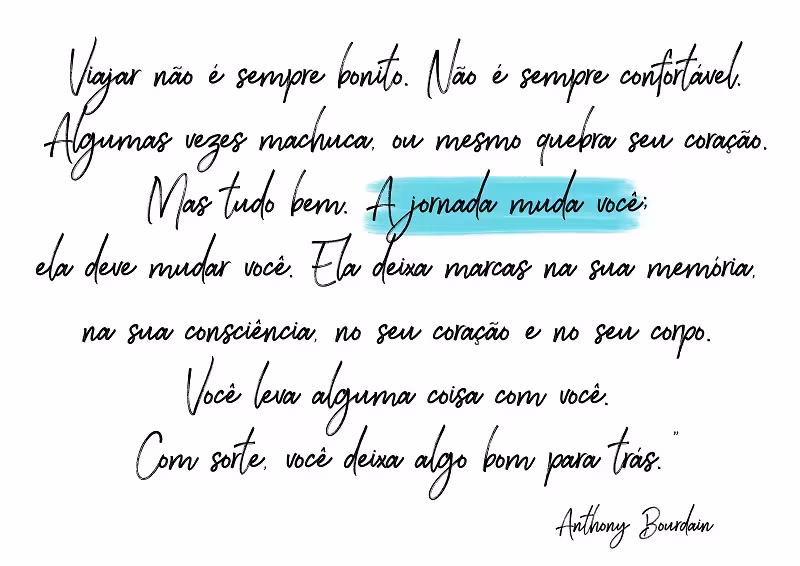 Viajar não é sempre bonito. Não é sempre confortável.
Algumas vezes machuca, ou mesmo quebra seu coração.
Mas tudo bem. A jornada muda você;
ela deve mudar você. Ela deixa marcas na sua memória,
na sua consciência, no seu coração e no seu corpo.
Você leva alguma coisa com você.
Com sorte, você deixa algo bom para trás.”
Anthony Bourdain